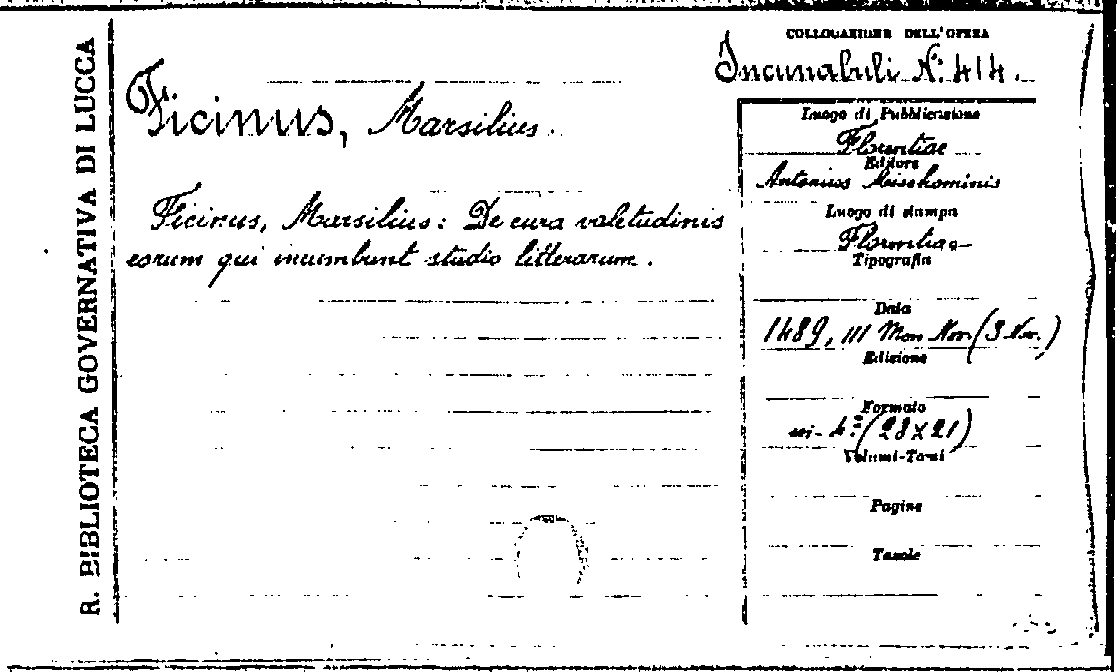 R. BIBLIOTECA GOVERNATIVA DI LUCCA
COLLOCAZIONE DELL'OPERA
Incunabuli N.º 414.
Ficinus, Marsilius.
Ficinus, Marsilius: De cura valetudinis
eorum qui incumbunt studio litterarum.
Luogo di Pubblicazione
Florentiae
Editore
Antonius Mischominis
Luogo di stampa
Florentiae
Tipografia
Data
1489, III Non Nov. (3 Nov.)
Edizione
Formato
in-4.º (28x21)
Volumi-Tomi
Pagine
Tavole